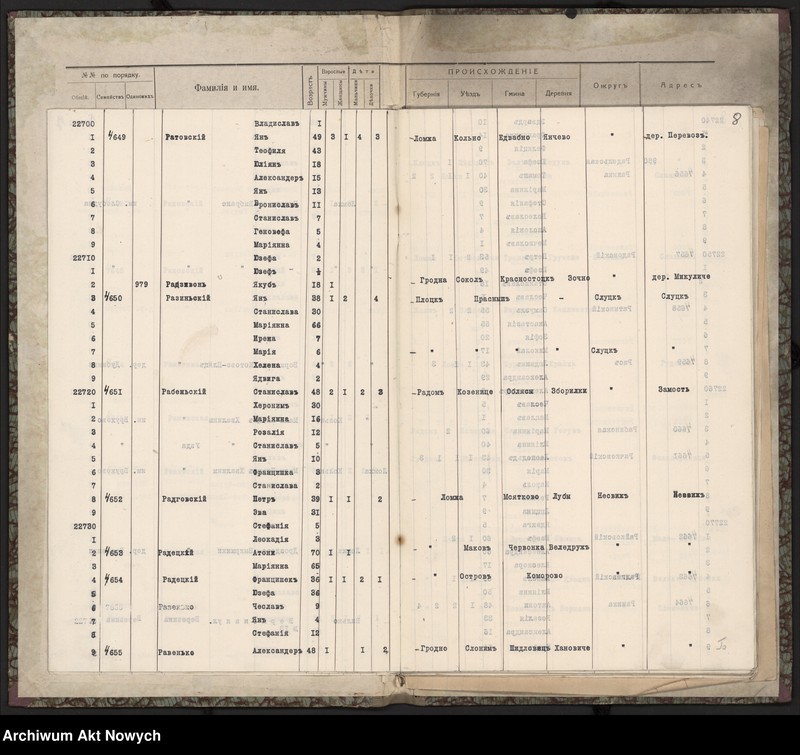 №№ по порядку. Фамилія и имя. Возрастъ Взрослые Дѣти ПРОИСХОЖДЕНІЕ Округъ Адресъ
Семействъ Одинокихъ Мужчины Женщины Мальчики Дѣвочки Губернія Уѣздъ Гмина Деревня
8
22700 Владиславъ I
I 4/649 Ратовскій Янъ 49 3 I 4 3 Ломжа Кольно Едвабно Янчево " дер. Перевозъ.
2 Теофиля 43
3 Юліянъ 18
4 Александеръ 15
5 Янъ 13
6 Брониславъ II
7 Станиславъ 7
8 Геновефа 5
9 Маріянна 4
22710 Юзефа 2
I Юзефъ
2 979 Радзивонъ Якубъ 18 I Гродна Соколъ Красностоцкъ Зочно " дер. Микуличе
3 4/650 Разиньскій Янъ 38 I 2 4 Плоцкъ Праснышъ - Слуцкъ Слуцкъ
4 Станислава 30
5 Маріянна 66
6 Ирена 7
7 Марія 6 " " " " Слуцкъ "
8 Хелена 4
9 Ядвига 2
22720 4/651 Рабеньскій Станиславъ 48 2 I 2 3 Радомъ Козенице Облясы Зборилки " Замость
I Херонимъ 30
2 Маріянна 16
3 Розалія 12
4 Станиславъ 5
5 Янъ 10
6 Францишка 3
7 Станислава 2
8 4/652 Радговскій Петръ 39 I I 2 Ломжа Моятково Лубы Несвижъ Несвижъ
9 Эва 31
22730 Стефанія 5
I Леокадія 3
2 4/653 Радецкій Атони 70 I I " Маковъ Червонка Веледружъ " "
3 Маріянна 65
4 4/654 Радецкій Францишекъ 36 I I 2 I " Островъ Коморово " "
5 Юзефа 36
6 Чеславъ 9
7 Янъ 4
8 Стефанія 12
9 4/655 Равенько Александеръ 48 I I 2 Гродно Слонимъ Шидловицъ Хановиче " "
Archiwum Akt Nowych